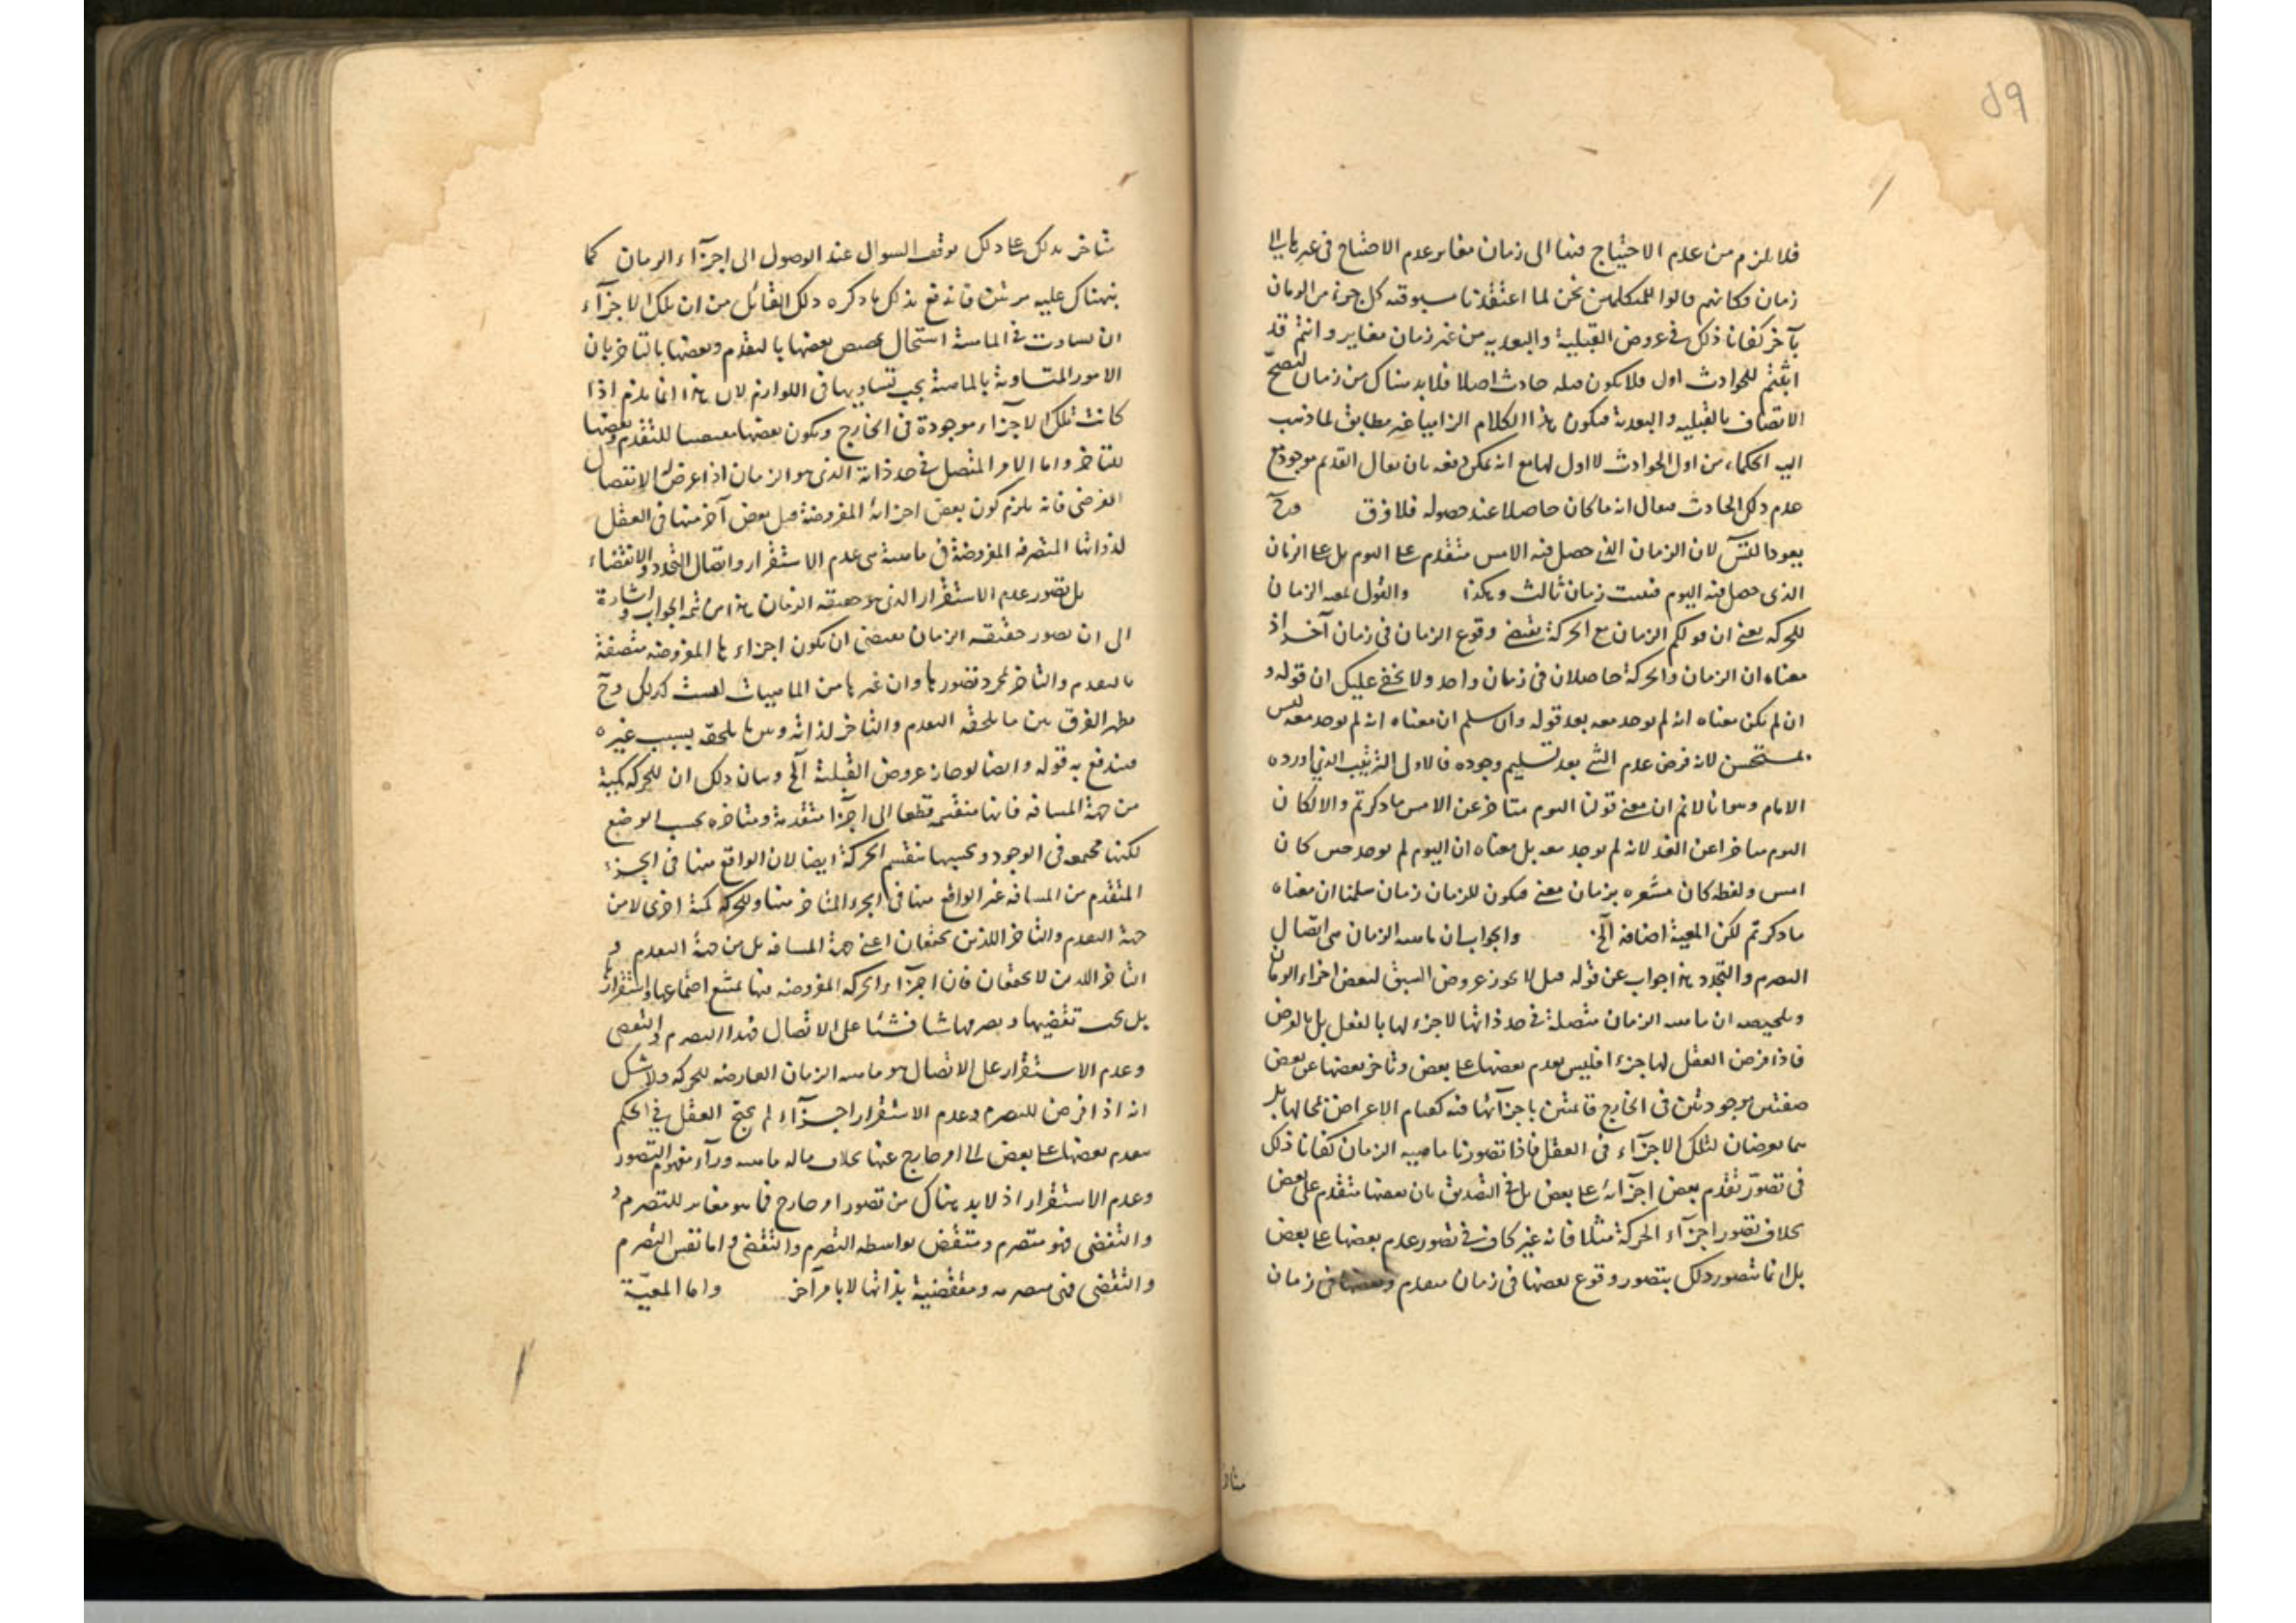 ٥٩
فلا يلزم من عدم الاحتياج فيها الى زمان مغاير عدم الاحتياج فى غيرها الى
زمان فكانهم قالوا للمتكلمين نحن لما اعتقدنا مسبوقية كل جزء من الزمان
بآخر كفانا ذلك فى عروض القبلية والبعديه من غير زمان مغاير وانتم قد
اثبتم للحوادث اول فلا يكون قبله حادث اصلا فلا بد هناك من زمان لتصح
الاتصاف بالقبليه والبعدية فيكون هذا الكلام الزاميا غير مطابق لما ذهب
اليه الحكماء من اول الحوادث لا اول لها مع انه يمكن دفعه بان يقال القديم موجود مع
عدم ذلك الحادث فيقال انه ما كان حاصلا عند حصوله فلا فرق وح
يعود التس لان الزمان الذى حصل فيه الامس متقدم على اليوم بل على الزمان
الذى حصل فيه اليوم فيثبت زمان ثالث وهكذا والقول بمعيه الزمان
للحركه يعنى ان قولكم الزمان مع الحركة يقتضى وقوع الزمان فى زمان آخر اذ
معناه ان الزمان والحركة حاصلان فى زمان واحد ولا يخفى عليك ان قوله و
ان لم يكن معناه انه لم يوجد معه بعد قوله وان سلم ان معناه انه لم يوجد معه ليس
بمستحسن لانه فرض عدم الشئ بعد تسليم وجوده فالاولى الترتيب الذى اورده
الامام وهو انا لا نم ان معنى قولنا اليوم متاخر عن الامس ما ذكرتم والا لكان
اليوم متاخرا عن الغد لانه لم يوجد معه بل معناه ان اليوم لم يوجد حين كان
امس ولفظه كان مشعره بزمان مضى فيكون للزمان زمان سلمنا ان معناه
ما ذكرتم لكن المعية اضافه الخ والجواب ان ماهيه الزمان هى اتصال
التصرم والتجدد هذا جواب عن قوله قيل لا يجوز عروض السبق لبعض اجزاء الزمان
وتلخيصه ان ماهيه الزمان متصلة فى حد ذاتها لا جزء لها بالفعل بل بالفرض
فاذا فرض العقل لها جزءا فليس تقدم بعضها على بعض وتاخر بعضها عن بعض
صفتين موجودتين فى الخارج قائمتين باجزآئها فيه كقيام الاعراض بمحالها بل
هما يعرضان لتلك الاجزآء فى العقل فاذا تصورنا ماهيه الزمان كفانا ذلك
فى تصور تقدم بعض اجزآئه على بعض بل فى التصديق بان بعضها متقدم على بعض
بخلاف تصور اجزآء الحركة مثلا فانه غير كاف فى تصور عدم بعضها على بعض
بل انما يتصور ذلك بتصور وقوع بعضها فى زمان متقدم وبعضها فى زمان
متاخر
متاخر بذلك على ذلك توقف السوال عند الوصول الى اجزآء الزمان كما
نبهناك عليه مرتين فاندفع بذلك ما ذكره ذلك القائل من ان تلك الاجزآء
ان تساوت فى الماهية استحال تخصص بعضها بالتقدم وبعضها بالتاخر بان
الامور المتساوية بالماهية يجب تساويها فى اللوازم لان هذا انما يلزم اذا
كانت تلك الاجزآء موجودة فى الخارج ويكون بعضها مقتضيا للتقدم وبعضها
للتاخر واما الامر المتصل فى حد ذاته الذى هو الزمان اذا عرض له الانفصال
الفرضى فانه يلزم كون بعض اجزائه المفروضة قبل بعض آخر منها فى العقل
لذواتها المتصرفه المفروضة فى ماهية هى عدم الاستقرار واتصال التجدد والانقضاء
بل تصور عدم الاستقرار الذى هو حقيقه الزمان هذا من تتمه الجواب واشارة
الى ان تصور حقيقه الزمان يقتضى ان يكون اجزاءها المفروضه متصفة
بالتقدم والتاخر لمجرد تصورها وان غيرها من الماهيات ليست كذلك وح
يظهر الفرق بين ما يلحقه التقدم والتاخر لذاته وبين ما يلحقه بسبب غيره
فيندفع به قوله وايضا لو جاز عروض القبلية الخ وبيان ذلك ان للحركه كمية
من جهة المسافه فانها منقسمه قطعا الى اجزآء متقدمة ومتاخره بحسب الوضع
لكنها مجتمعه فى الوجود وبحسبها تنقسم الحركة ايضا لان الواقع منها فى الجزء
المتقدم من المسافه غير الواقع منها فى الجزء المتاخر منها وللحركه كمية اخرى لا من
جهة التقدم والتاخر اللذين يجتمعان اعنى جهة المسافه بل من جهة التقدم و
التاخر اللذين لا يجتمعان فان اجزآء الحركه المفروضه فيها يمتنع اجتماعها واستقرارها
بل يجب تقضيها وتصرمها شيئا فشيئا على الاتصال فهذا التصرم والتقضى
وعدم الاستقرار على الاتصال هو ماهيه الزمان العارضه للحركه ولا شك
انه اذا فرض للتصرم وعدم الاستقرار اجزآء لم يحتج العقل فى الحكم
بتقدم بعضها على بعض الى امر خارج عنها بخلاف ماله ماهيه ورآء مفهوم التصور
وعدم الاستقرار اذ لا بد هناك من تصور امر خارج فما هو مغاير للتصرم و
والتقضى فهو متصرم ومتقض بواسطه التصرم والتقضى واما نفس التصرم
والتقضى فهى متصرمه ومتقضية بذاتها لا بامر آخر واما المعيّة